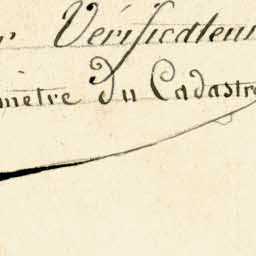 r Vérificateur
mètre du Cadastre